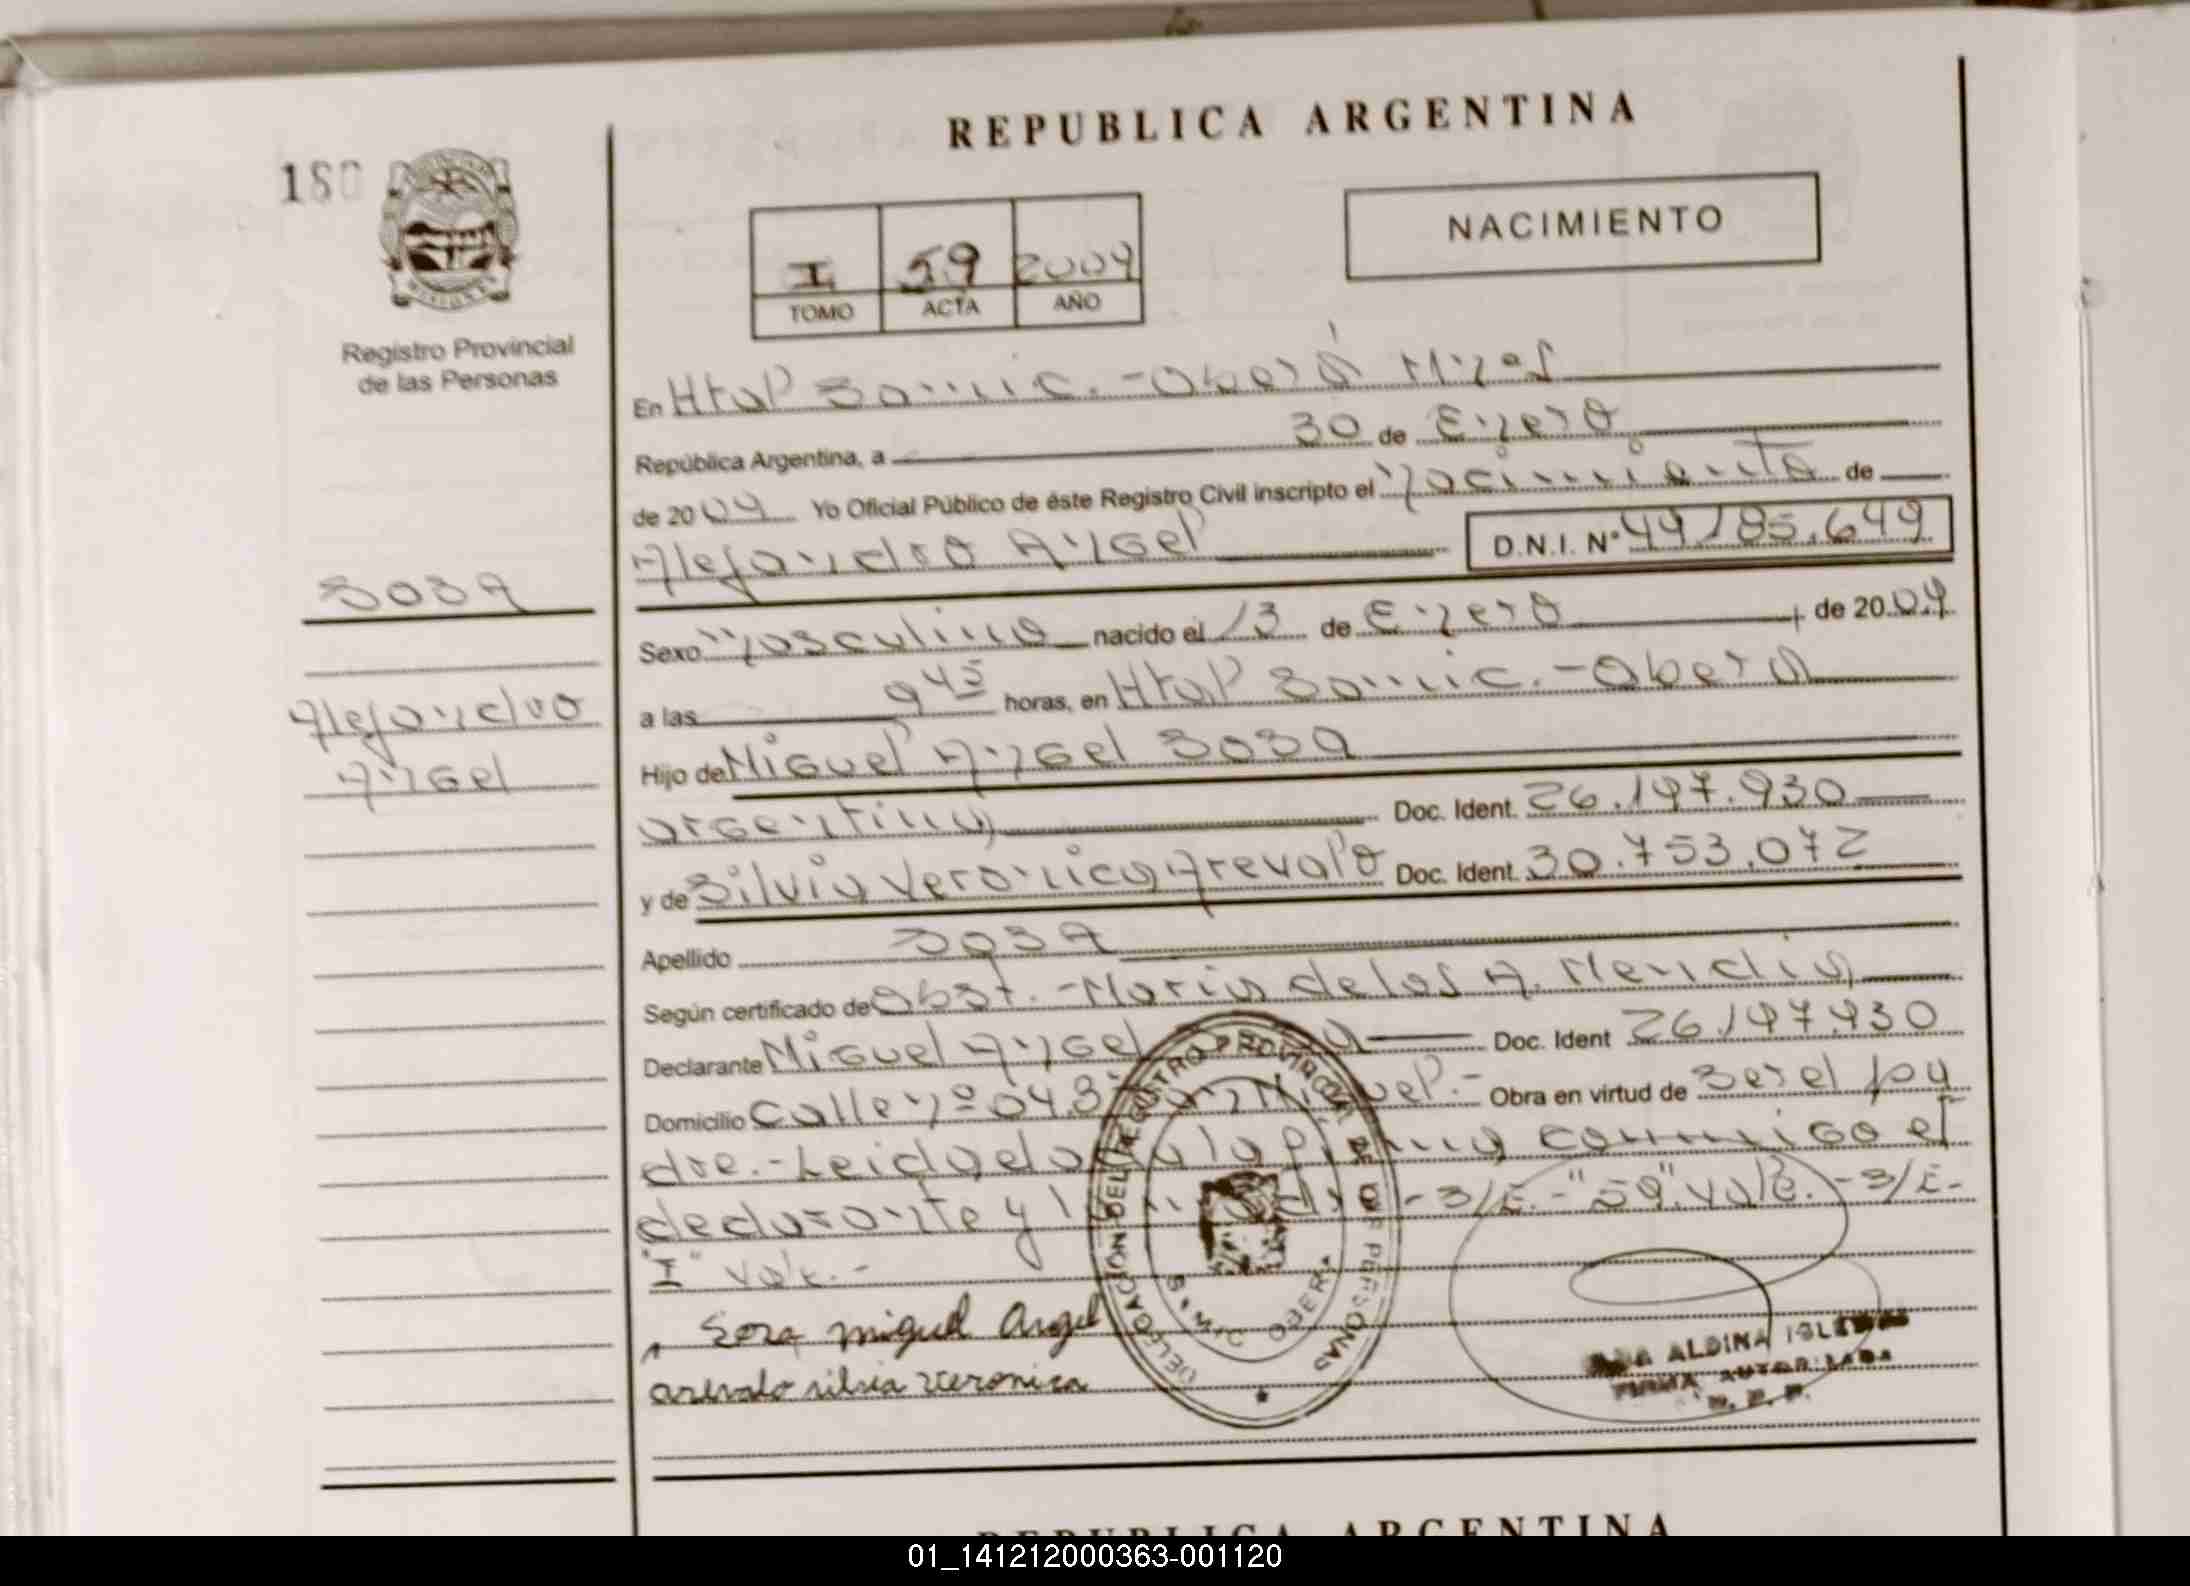 REPUBLICA ARGENTINA
NACIMIENTO
I 59 2004
TOMO ACTA AÑO
Registro Provincial
de las Personas
SOSA
Alejandro
Angel
En Htal Samic.-Oberá Mnes
República Argentina, a 30 de Enero
de 2004 Yo Oficial Público de éste Registro Civil inscripto el Nacimiento de
Alejandro Angel D.N.I. Nº 44.185.649
Sexo Masculino nacido el 13 de Enero de 2004
a las 9 45 horas, en Htal Samic.-Obera
Hijo de Miguel Angel SOSA
argentino Doc. Ident. 26.197.930
y de Silvia Veronica Arevalo Doc. Ident. 30.753.072
Apellido SOSA
Según certificado de Obst.-Maria de los A. Mendia
Declarante Miguel Angel Doc. Ident 26.197.930
Domicilio Calle nº 043 San Miguel.- Obra en virtud de Ser el pa
dre.-Leida el acta la firma conmigo el
declarante y la madre-S/E.-"59".vale.-S/E-
"I" vale.-
Sosa miguel Angel
arevalo silvia veronica
DELEGACION DEL REGISTRO PROVINCIAL DE LAS PERSONAS
OBERA
ALDINA
FIRMA AUTORIZADA
R. P. P.
REPUBLICA ARGENTINA
01_141212000363-001120